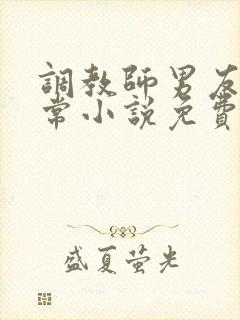 調教師男友
常小說免費
盛夏萤光